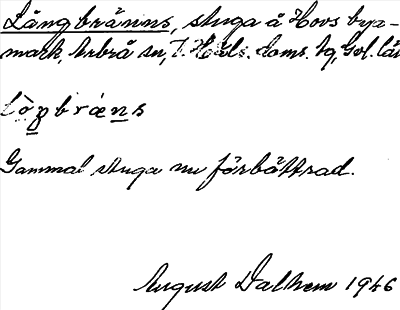 Långbränns, stuga å Hovs bya-
mark, Arbrå sn, V. Häls. doms. hg, Gvl. län
lòŋbrœns
Gammal stuga nu förbättrad.
August Dalhem 1946